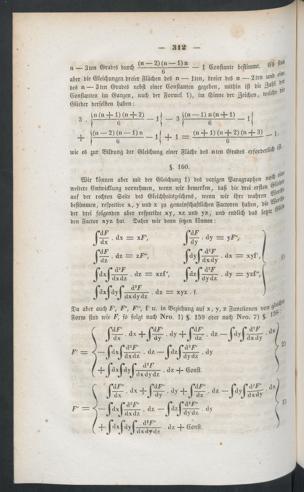 — 312 —
n — 3ten Grades durch (n — 2) (n — 1) n / 6 — 1 Constante bestimme. Es sind
aber die Gleichungen dreier Flächen des n — 1ten, dreier des n — 2ten und einer
des n — 3ten Grades nebst einer Constanten gegeben, mithin ist die Zahl der
Constanten im Ganzen, nach der Formel 1), im Sinne der Zeichen, welche die
Glieder derselben haben:
3 . { n (n + 1) (n + 2) / 6 — 1 } — 3 { (n — 1) n (n + 1) / 6 — 1 }
+ { (n — 2) (n — 1) n / 6 — 1 } + 1 = (n + 1) (n + 2) (n + 3) / 6 — 1
wie es zur Bildung der Gleichung einer Fläche des nten Grades erforderlich ist.
§. 160.
Wir können aber mit der Gleichung 1) des vorigen Paragraphen noch eine
weitere Entwicklung vornehmen, wenn wir bemerken, daß die drei ersten Glieder
auf der rechten Seite des Gleichheitszeichens, wenn wir ihre wahren Werthe
bestimmen, respective x, y und z zu gemeinschaftlichen Factoren haben, die Werthe
der drei folgenden aber respective xy, xz und yz, und endlich das letzte Glied
den Factor xyz hat. Daher wir denn setzen können:
∫ dF/dx . dx = xF', ∫ dF/dy . dy = yF'',
∫ dF/dz . dz = zF''', ∫dx∫ d²F/dxdy . dy = xyf',
∫dx∫ d²F/dxdz . dz = xzf'', ∫dy∫ d²F/dydz . dz = yzf''',
∫dx∫dy∫ d³F/dxdydz . dz = xyz . f.
Da aber auch F', F'', F''', f' u. in Beziehung auf x, y, z Functionen von gleicher
Form sind wie F, so folgt nach Nro. 1) §. 159 oder nach Nro. 7) §. 158:
F' = { ∫ dF'/dx . dx + ∫ dF'/dy . dy + ∫ dF'/dz . dz — ∫dy∫ d²F'/dxdy . dx
— ∫dx∫ d²F'/dxdz . dz — ∫dz∫ d²F'/dydz . dy
+ ∫dx∫dy∫ d³F'/dxdydz . dz + Const. } 2)
F'' = { ∫ dF''/dx . dx + ∫ dF''/dy . dy + ∫ dF''/dz . dz — ∫dy∫ d²F''/dxdy . dx
— ∫dx∫ d²F''/dxdz . dz — ∫dz∫ d²F''/dydz . dy
+ ∫dx∫dy∫ d³F''/dxdydz . dz + Const. } 3)